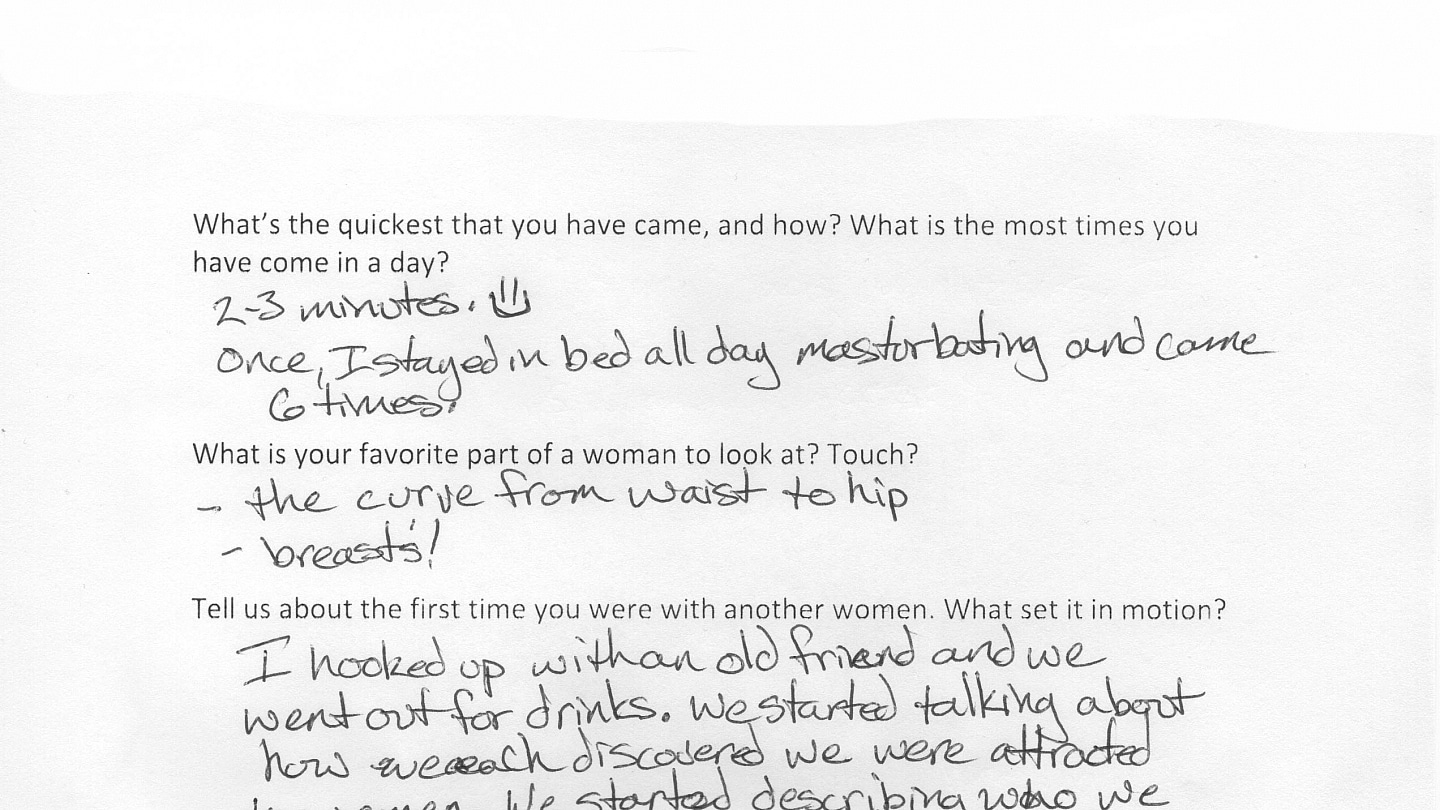 What's the quickest that you have came, and how? What is the most times you
have come in a day?
2-3 minutes.
Once, I stayed in bed all day mastorbating and came
6 times.
What is your favorite part of a woman to look at? Touch?
- the curve from waist to hip
- breasts!
Tell us about the first time you were with another women. What set it in motion?
I hooked up with an old friend and we
went out for drinks. We started talking about
how we each discovered we were attracted
women. We started describing who we